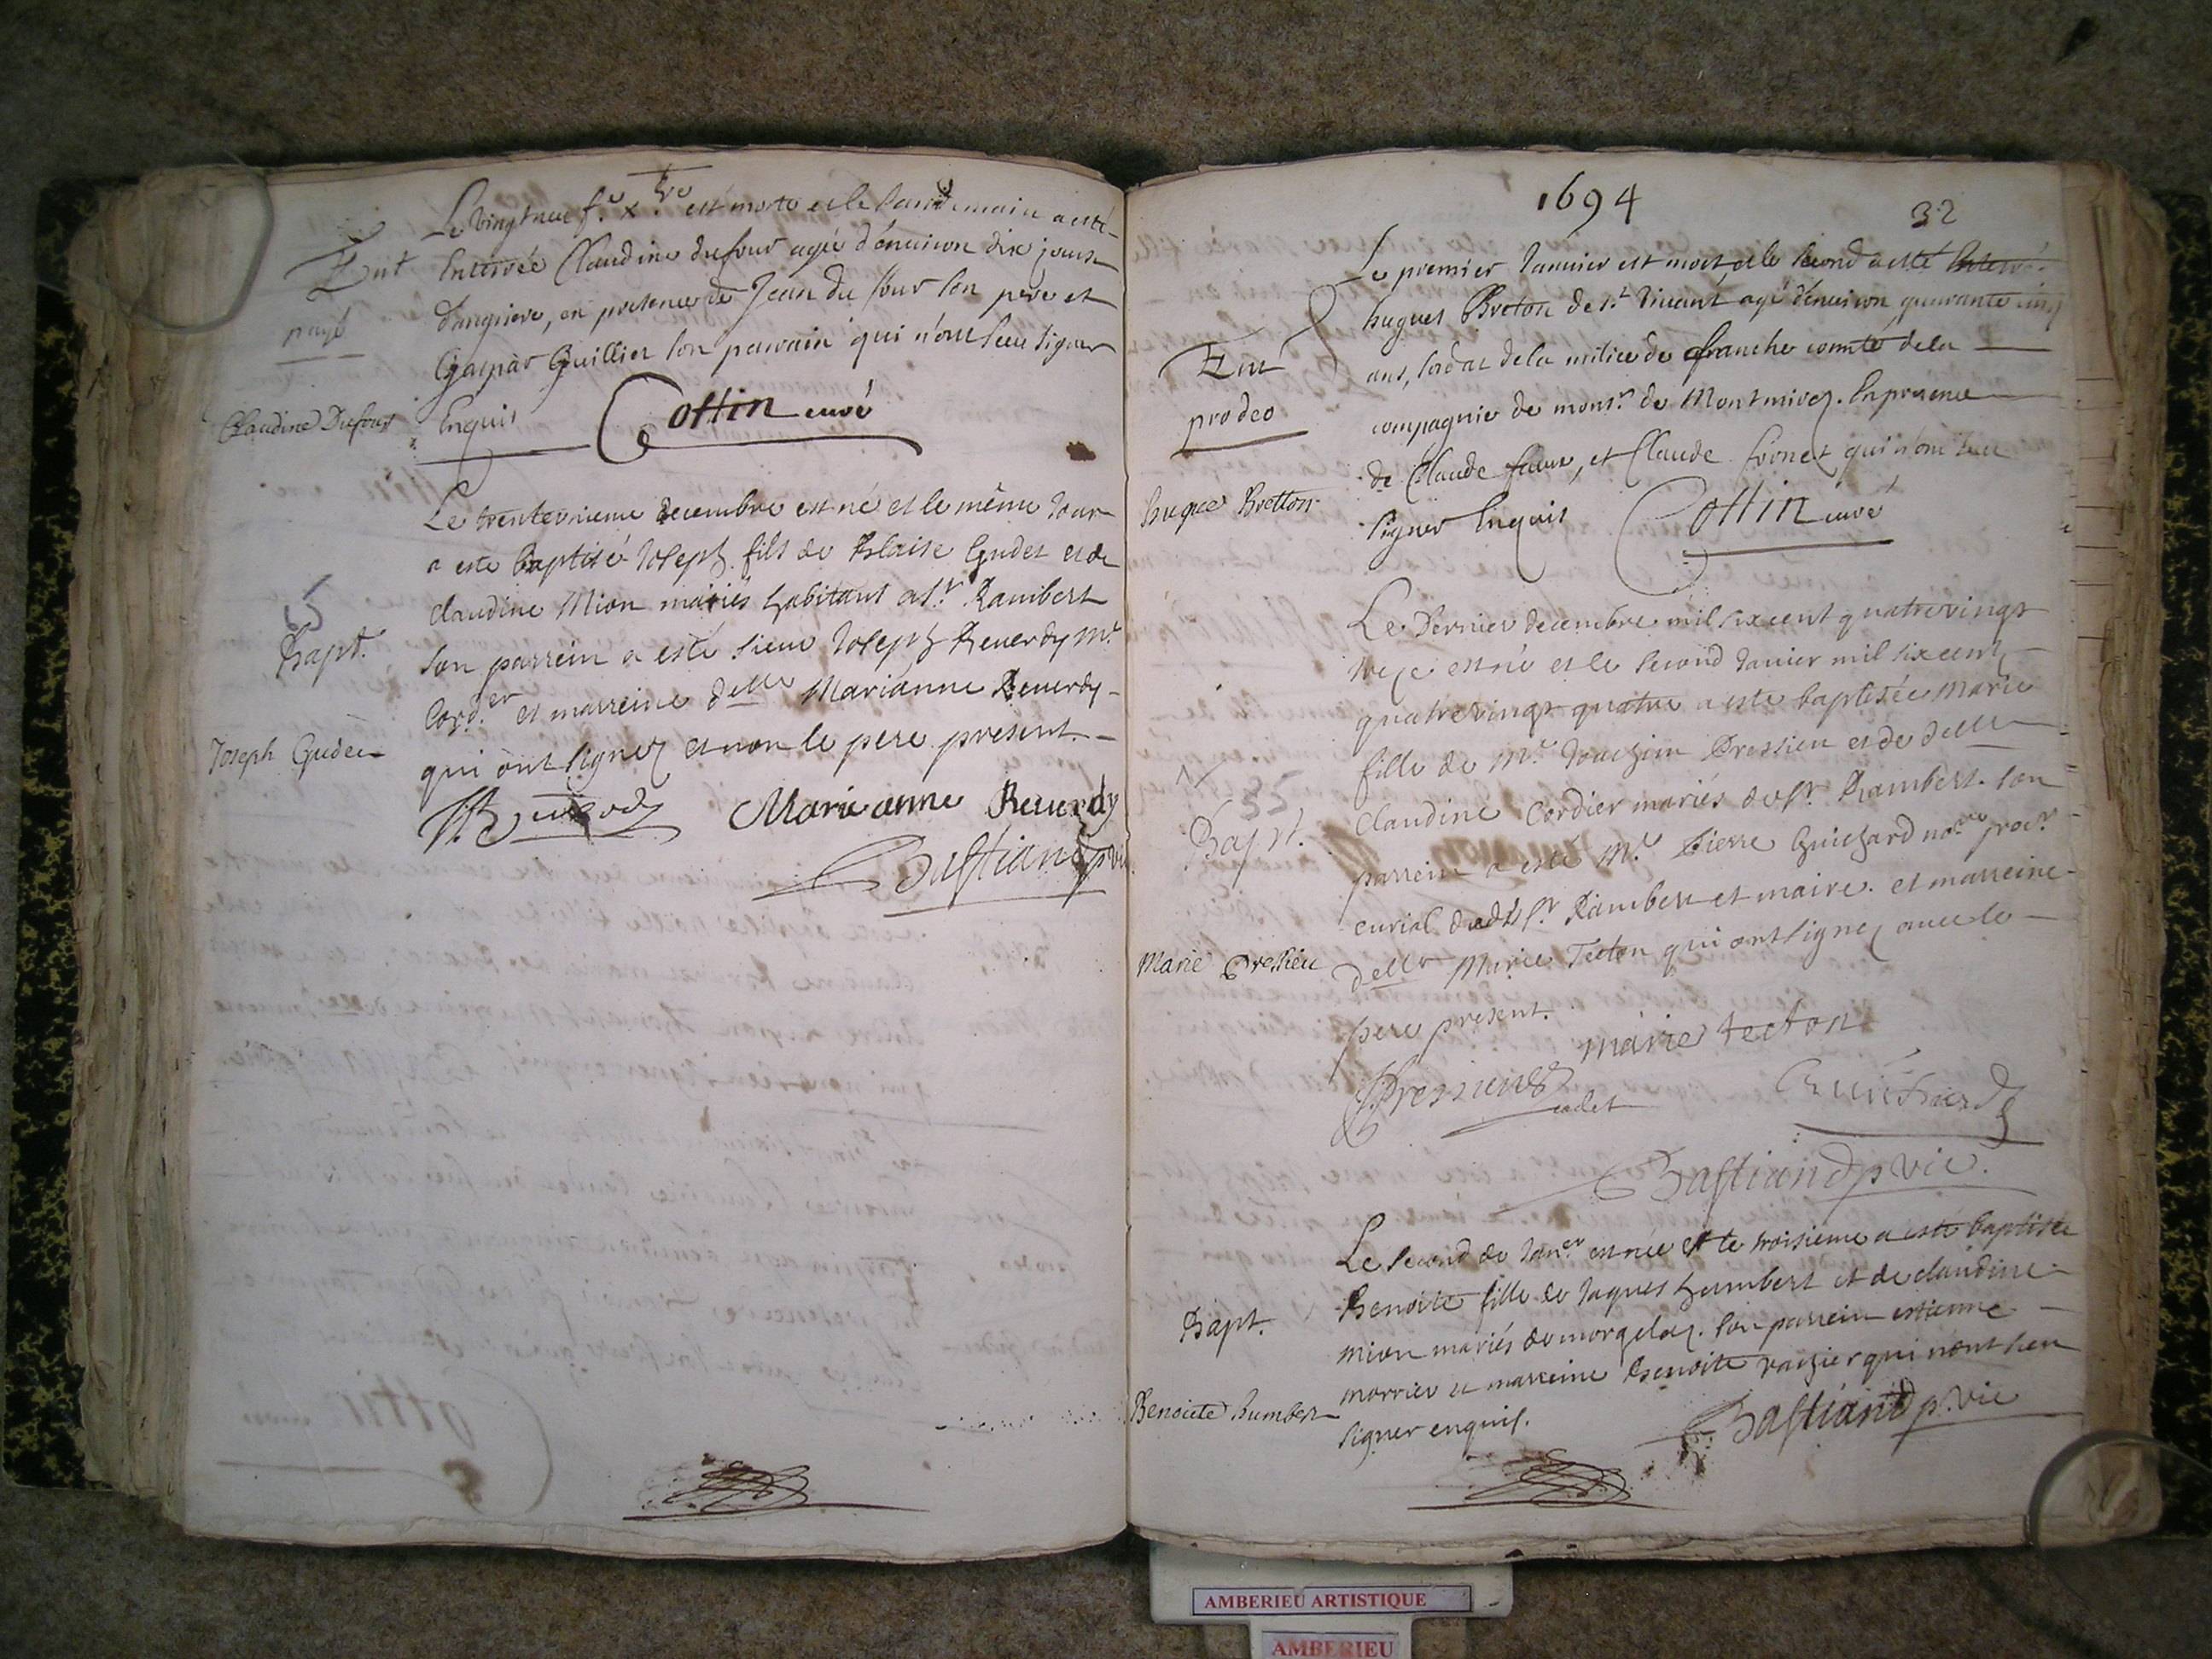 Le vingtneuf.e xbre est morte et le landemain a esté
Ent enterrée Claudine dufour agée d'enuiron dix jours
payé d'angriere, en presence de Jean du four son pere et
Gaspar Guillier son parrain qui n'ont sceu signer
Claudine Dufour Enquis Cottin curé
Le trenteunieme decembre est né et le même Jour
a este baptisé Joseph fils de Blaise Gudet et de
claudine Mion mariés habitant a St Rambert
Bapt. son parrein a esté sieur Joseph Reuerdy Mre
Cord.er et marreine delle Marianne Reuerdy
Joseph Gudet qui ont signez et non le pere present.
JReuerdy Marie anne Reuerdy
Bastiand p vic
1694 32
Le premier Januier est mort et le second a esté Enterré
hugues Breton de St Vincent agé d'enuiron quarante cinq
Ent ans, soldat de la milice de franche comté de la
prodeo compagnie de monsr de Montmirez. En presence
de Claude faure, et Claude Cornet qui n'ont sceu
hugue Bretton signer Enquis Cottin curé
Le Dernier decembre mil six cent quatrevingt
treze est né et le second Janier mil six cent
quatrevingt quatre a este baptisée Marie
fille de Mre Joachim Pressieu et de delle
35
Bapt. claudine Cordier mariés de St Rambert. son
parrein a esté Mre Pierre Guichard nore procr
curial dudt St Rambert et maire. et marreine
Marie Pressieu delle Marie Tecton qui ont signez auec le
pere present.
marie tecton
Pressieu cadet Guichard
Bastiand p vic.
Le second de Janer est née et le troisieme a esté baptisée
Benoite fille de Jaques humbert et de claudine
Bapt. mion mariés de morgelaz. son parrein estienne
morrier et marreine Benoite rauier qui n'ont sceu
Benoiete humbert signer enquis. Bastiand p. vic
AMBERIEU ARTISTIQUE
AMBERIEU